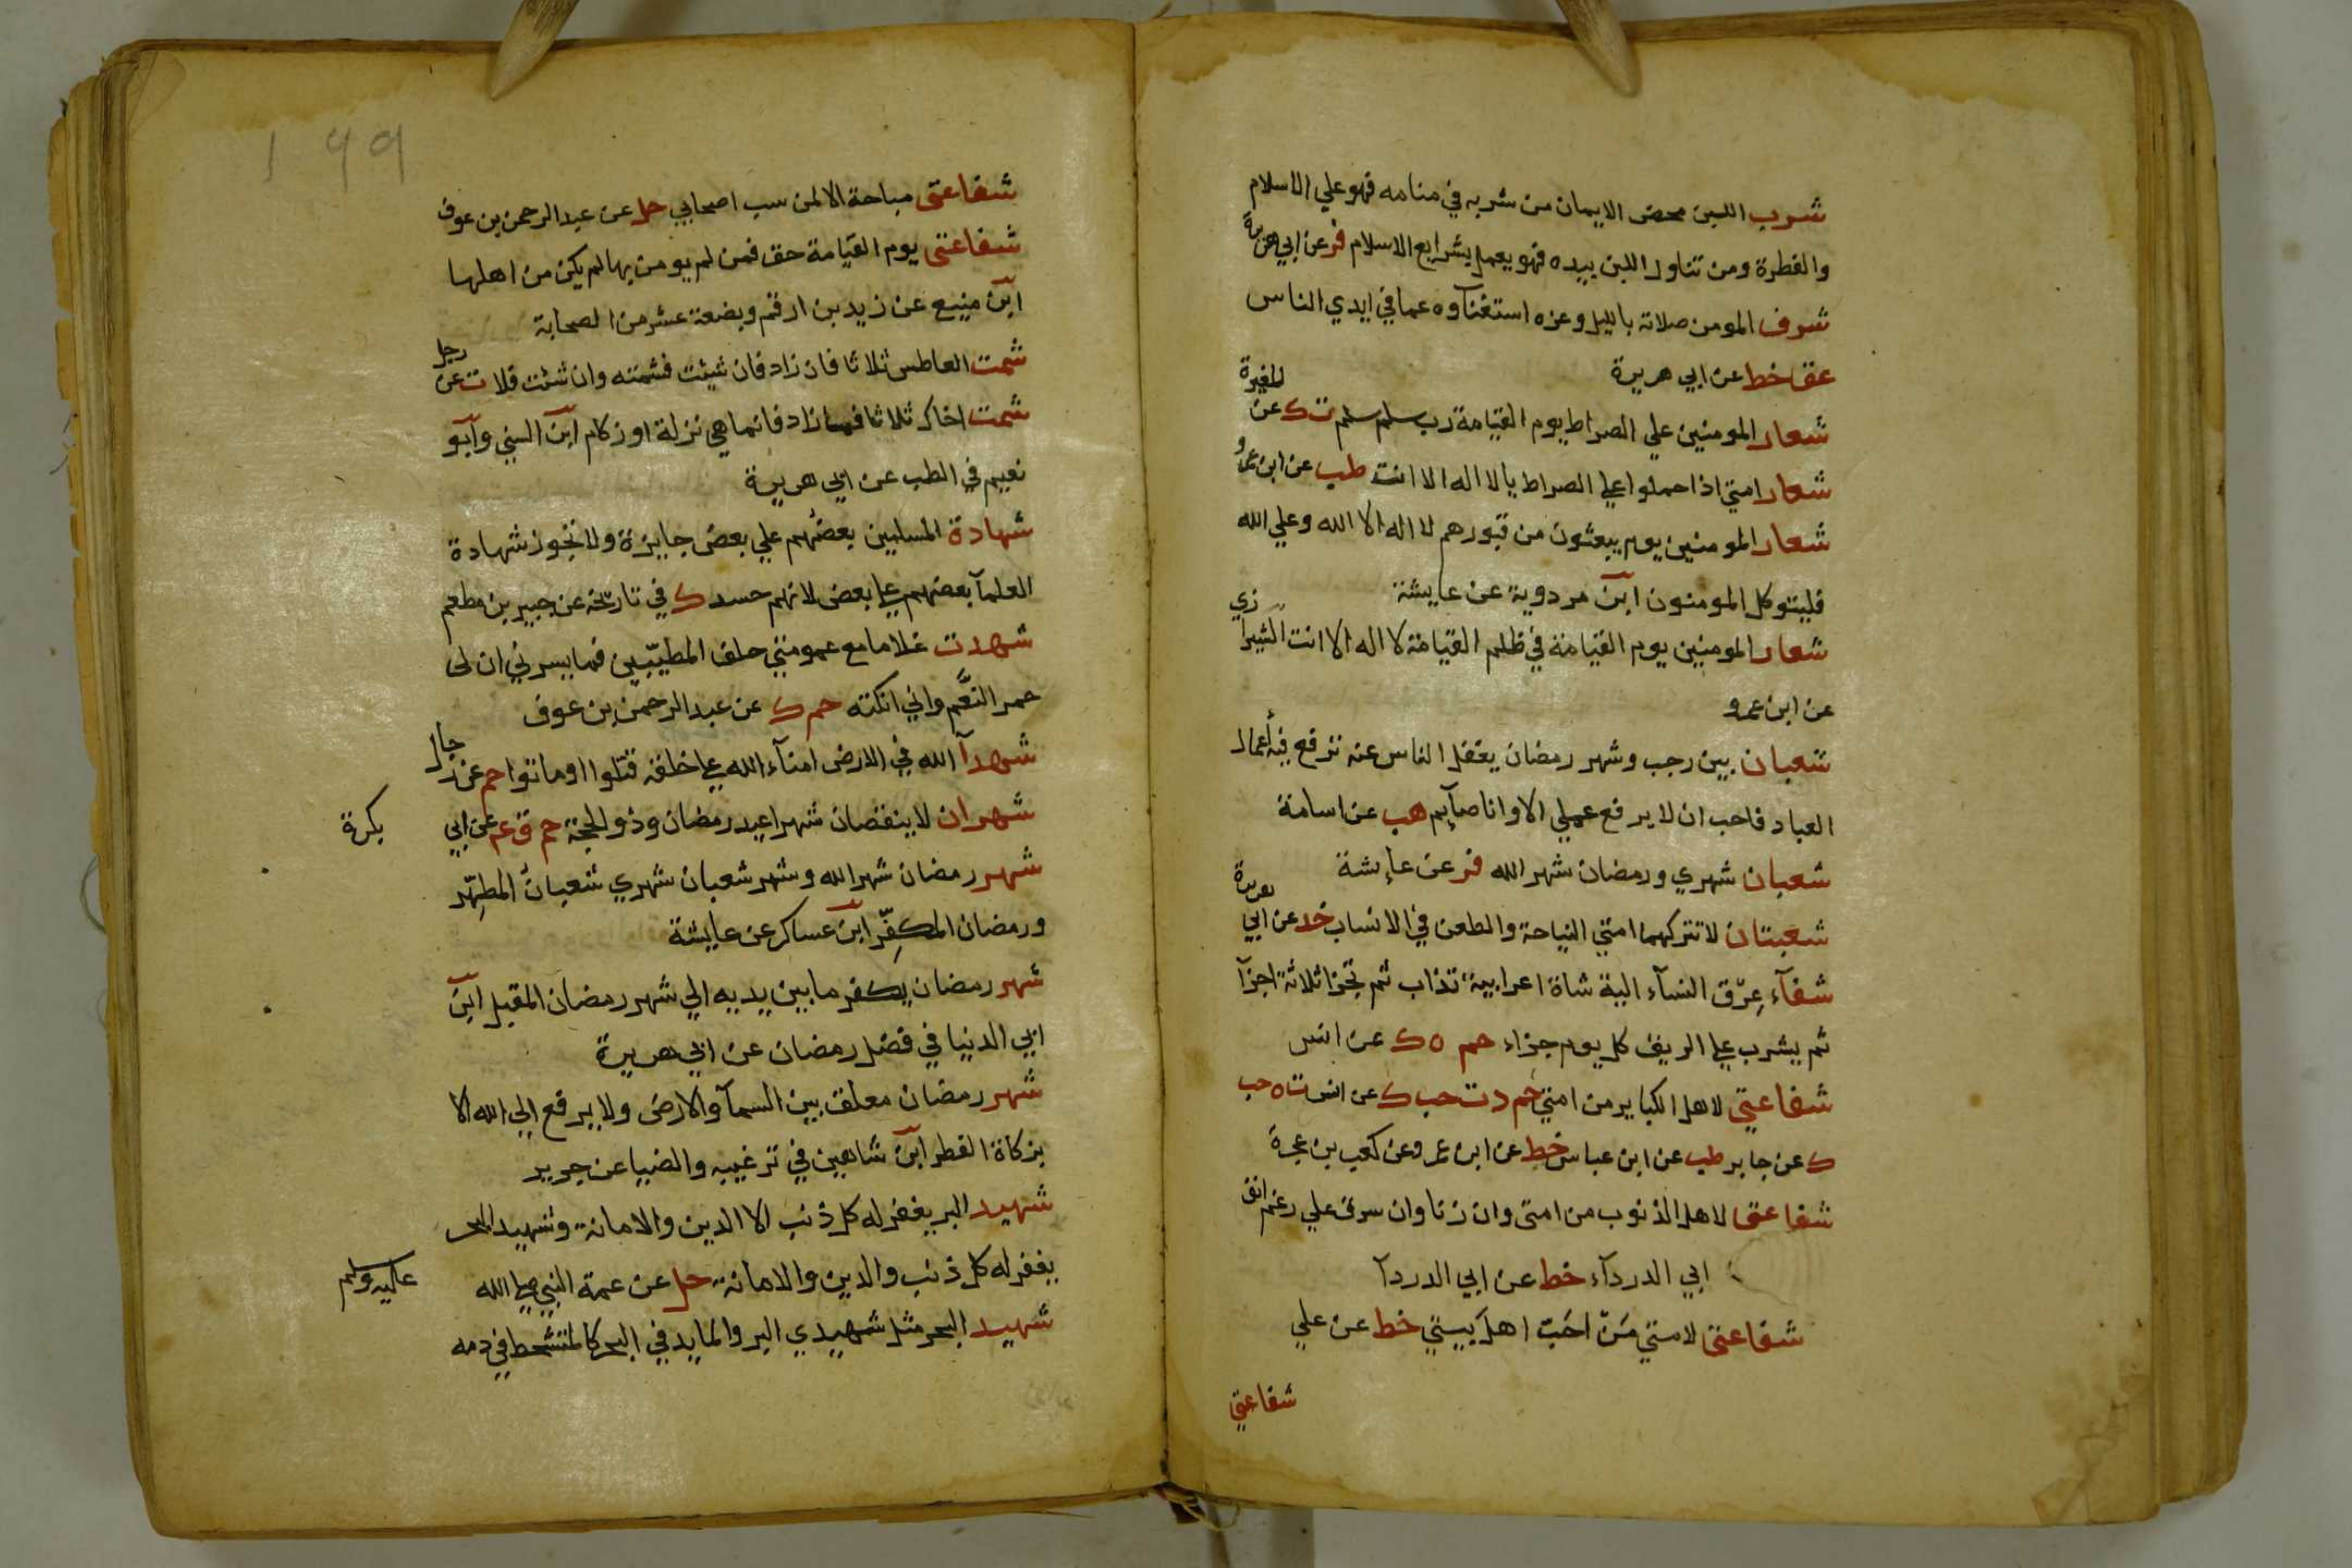 شرب اللبن محض الايمان من شربه في منامه فهو علي الاسلام
والفطرة ومن تناول اللبن بيده فهو يعمل بشرايع الاسلام فر عن ابي هريرة
شرف المومن صلاته بالليل وعزه استغنآوه عما في ايدي الناس
عق خط عن ابي هريرة
شعار المومنين علي الصراط يوم القيامة رب سلم سلم ت ك عن المغيرة
شعار امتي اذا حملوا علي الصراط يا لا اله الا انت طب عن ابن عمرو
شعار المومنين يوم يبعثون من قبورهم لا اله الا الله وعلي الله
فليتوكل المومنون ابن مردوية عن عايشة
شعار المومنين يوم القيامة في ظلم القيامة لا اله الا انت الشيرازي
عن ابن عمرو
شعبان بين رجب وشهر رمضان يغفل الناس عنه ترفع فيه أعمال
العباد فاحب ان لا يرفع عملي الا وانا صآيم هب عن اسامة
شعبان شهري ورمضان شهر الله فر عن عايشة
شعبتان لا تتركهما امتي النياحة والطعن في الانساب خد عن ابي هريرة
شفآء عرق النسآء الية شاة اعرابية تذاب ثم تجزا ثلاثة اجزآ
ثم يشرب علي الريق كل يوم جزاء حم ه ك عن انس
شفاعتي لاهل الكباير من امتي حم د ت حب ك عن انس ت ه حب
ك عن جابر طب عن ابن عباس خط عن ابن عمر وعن كعب بن عجرة
شفاعتى لاهل الذنوب من امتى وان زنا وان سرق علي رغم انف
ابي الدردآء خط عن ابي الدردآ
شفاعتى لامتي من احب اهل بيتي خط عن علي
شفاعتي
١٩٩
شفاعتى مباحة الا لمن سب اصحابي حل عن عبد الرحمن بن عوف
شفاعتى يوم القيامة حق فمن لم يومن بها لم يكن من اهلها
ابن منيع عن زيد بن ارقم وبضعة عشر من الصحابة
شمت العاطس ثلاثا فان زاد فان شيئت فشمته وان شئت فلا ت عن رجل
شمت اخاك ثلاثا فما زاد فانما هي نزلة او زكام ابن السني وابو
نعيم في الطب عن ابي هريرة
شهادة المسلمين بعضهم علي بعض جايزة ولا تجوز شهادة
العلمآ بعضهم علي بعض لانهم حسد ك في تاريخه عن جبير بن مطعم
شهدت غلاما مع عمومتي حلف المطيّبين فما يسرني ان لى
حمر النَّعَم واني انكثه حم ك عن عبد الرحمن بن عوف
شهدآ الله في الارض امنآء الله علي خلقه قتلوا او ماتوا حم عن رجال
شهران لا ينقصان شهرا عيد رمضان وذو الحجة حم ق عم عن ابي بكرة
شهر رمضان شهر الله وشهر شعبان شهري شعبان المطهِّر
ورمضان المكفِّر ابن عساكر عن عايشة
شهر رمضان يكفر ما بين يديه الي شهر رمضان المقبل ابن
ابي الدنيا في فضل رمضان عن ابي هريرة
شهر رمضان معلق بين السمآ والارض ولا يرفع الي الله الا
بزكاة الفطر ابن شاهين في ترغيبه والضيا عن جرير
شهيد البر يغفر له كل ذنب الا الدين والامانة وشهيد البحر
يغفر له كل ذنب والدين والامانة حل عن عمة النبي صلي الله عليه وسلم
شهيد البحر مثل شهيدي البر والمايد في البحر كالمتشحط في دمه